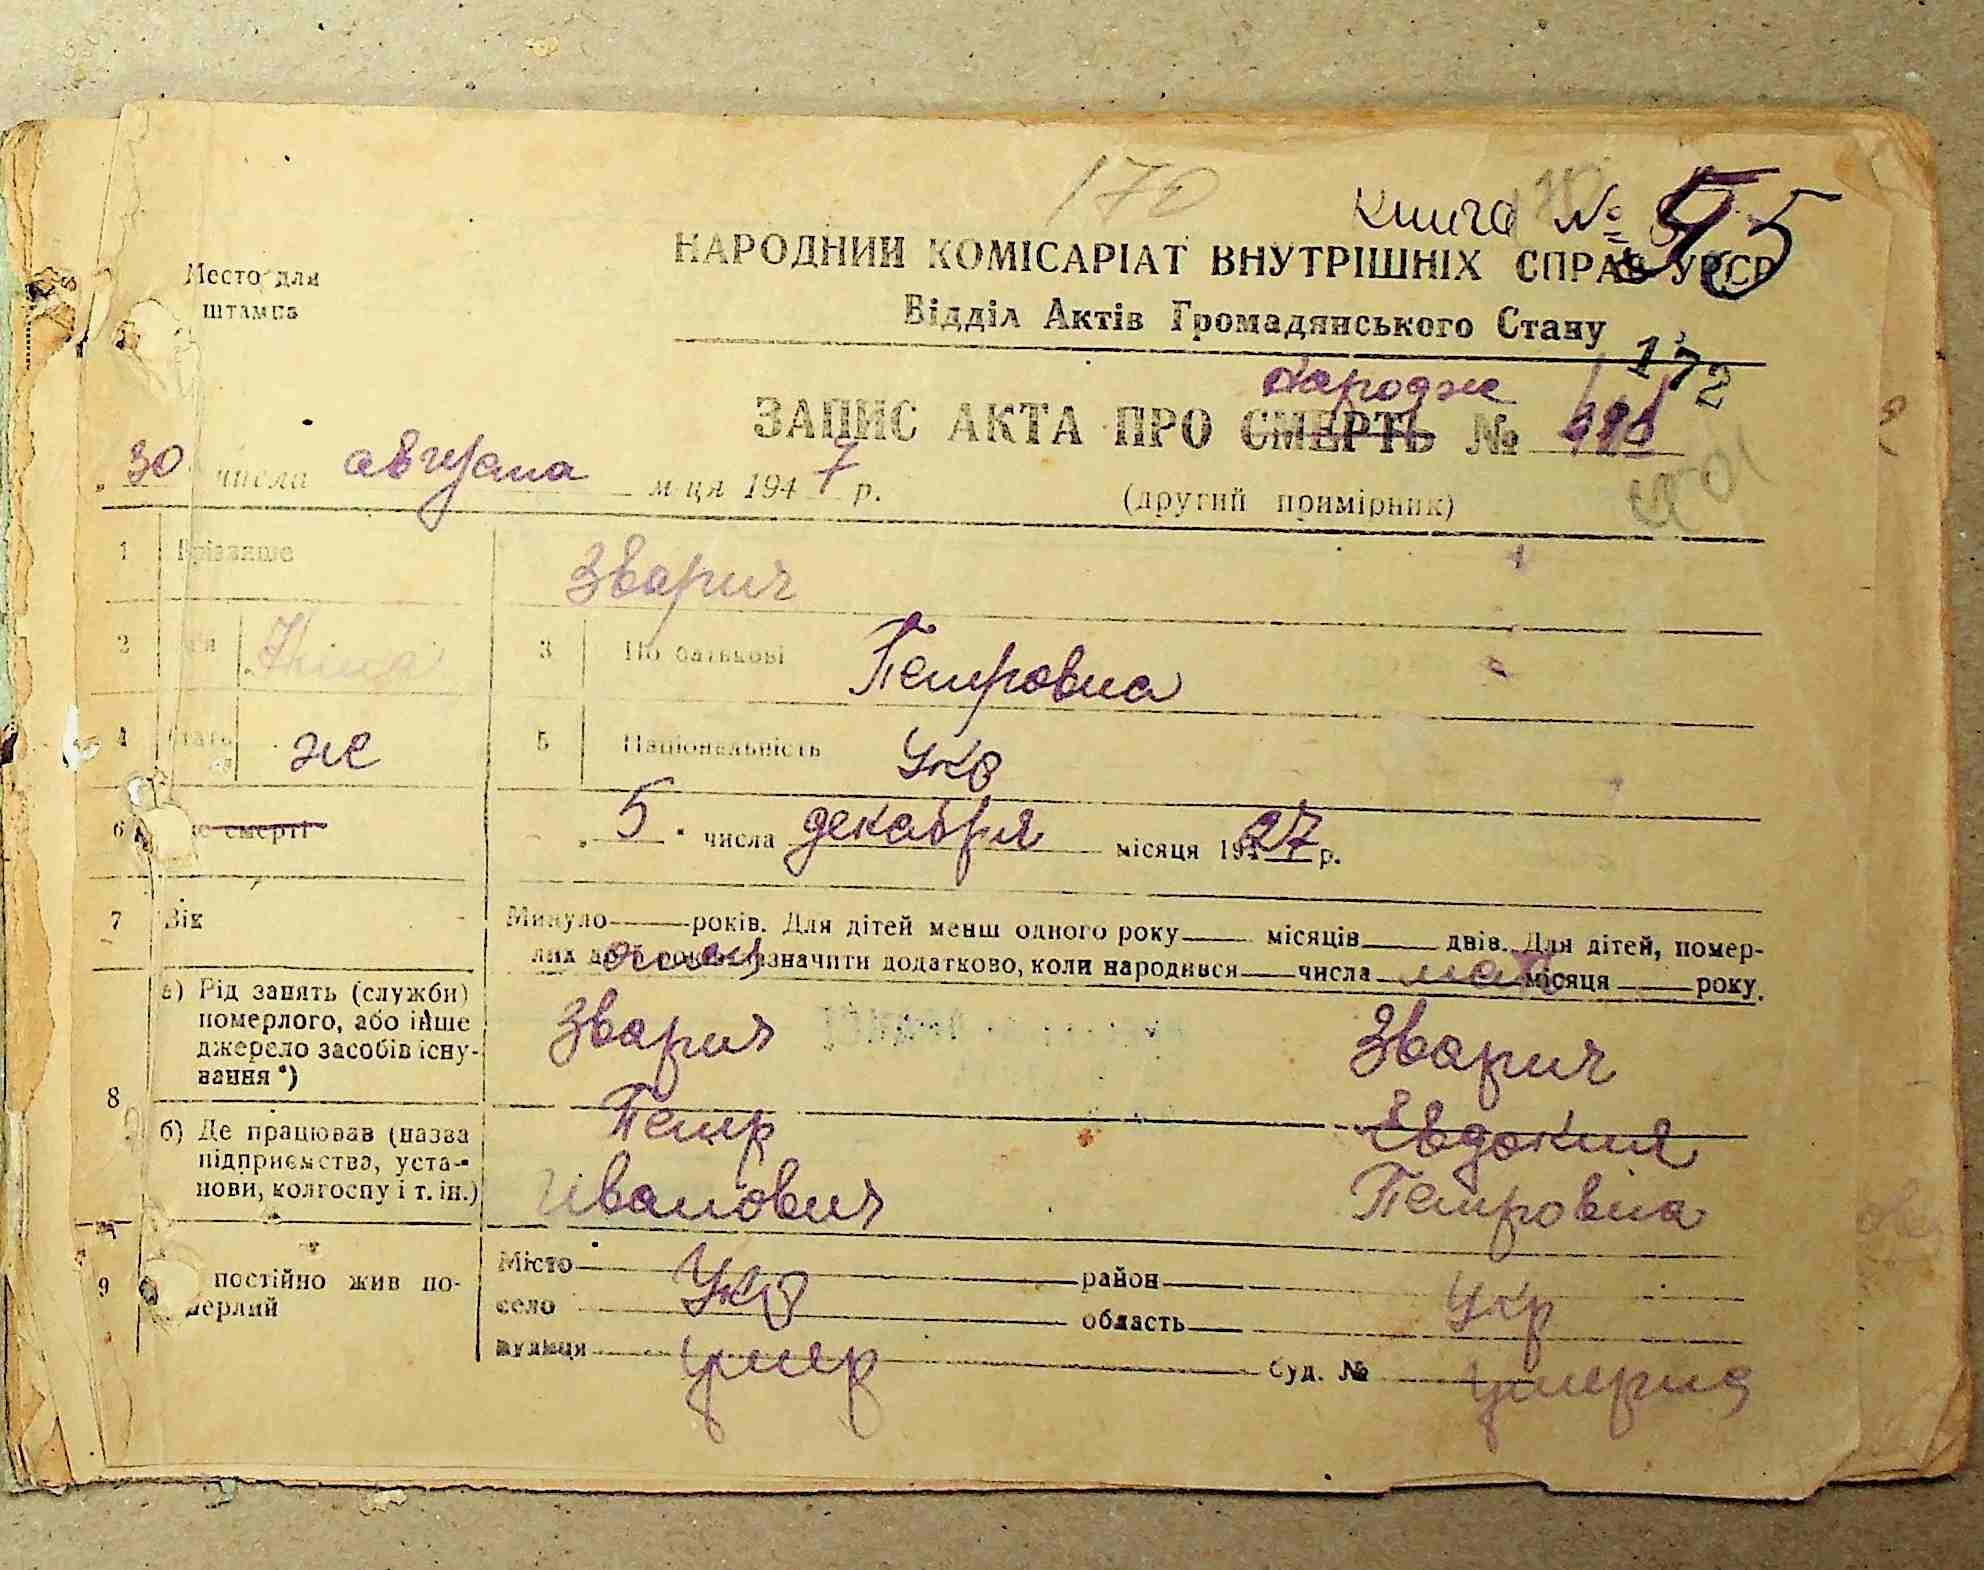 170
Книга № 55
Место для
штампа
НАРОДНИЙ КОМІСАРІАТ ВНУТРІШНІХ СПРАВ УРСР
Відділ Актів Громадянського Стану
172
народже
ЗАПИС АКТА ПРО СМЕРТЬ №
„30" числа августа м-ця 1947 р. (другий примірник)
1 Прізвище Зварич
2 Ім'я Ніна 3 По батькові Петровна
4 Стать же 5 Національність Укр
6 смерті „5" числа декабря місяця 1927 р.
7 Вік Минуло — років. Для дітей менш одного року — місяців — днів. Для дітей, помер-
лих до років зазначити додатково, коли народився — числа — місяця — року.
отец мать
8 а) Рід занять (служби)
померлого, або інше
джерело засобів існу-
вання *)
Зварич Зварич
б) Де працював (назва
підприємства, уста-
нови, колгоспу і т. ін.)
Петр Евдокия
Иванович Петровна
9 постійно жив по-
мерлий
Місто район
село Укр область Укр
вулиця умер буд. № умерла